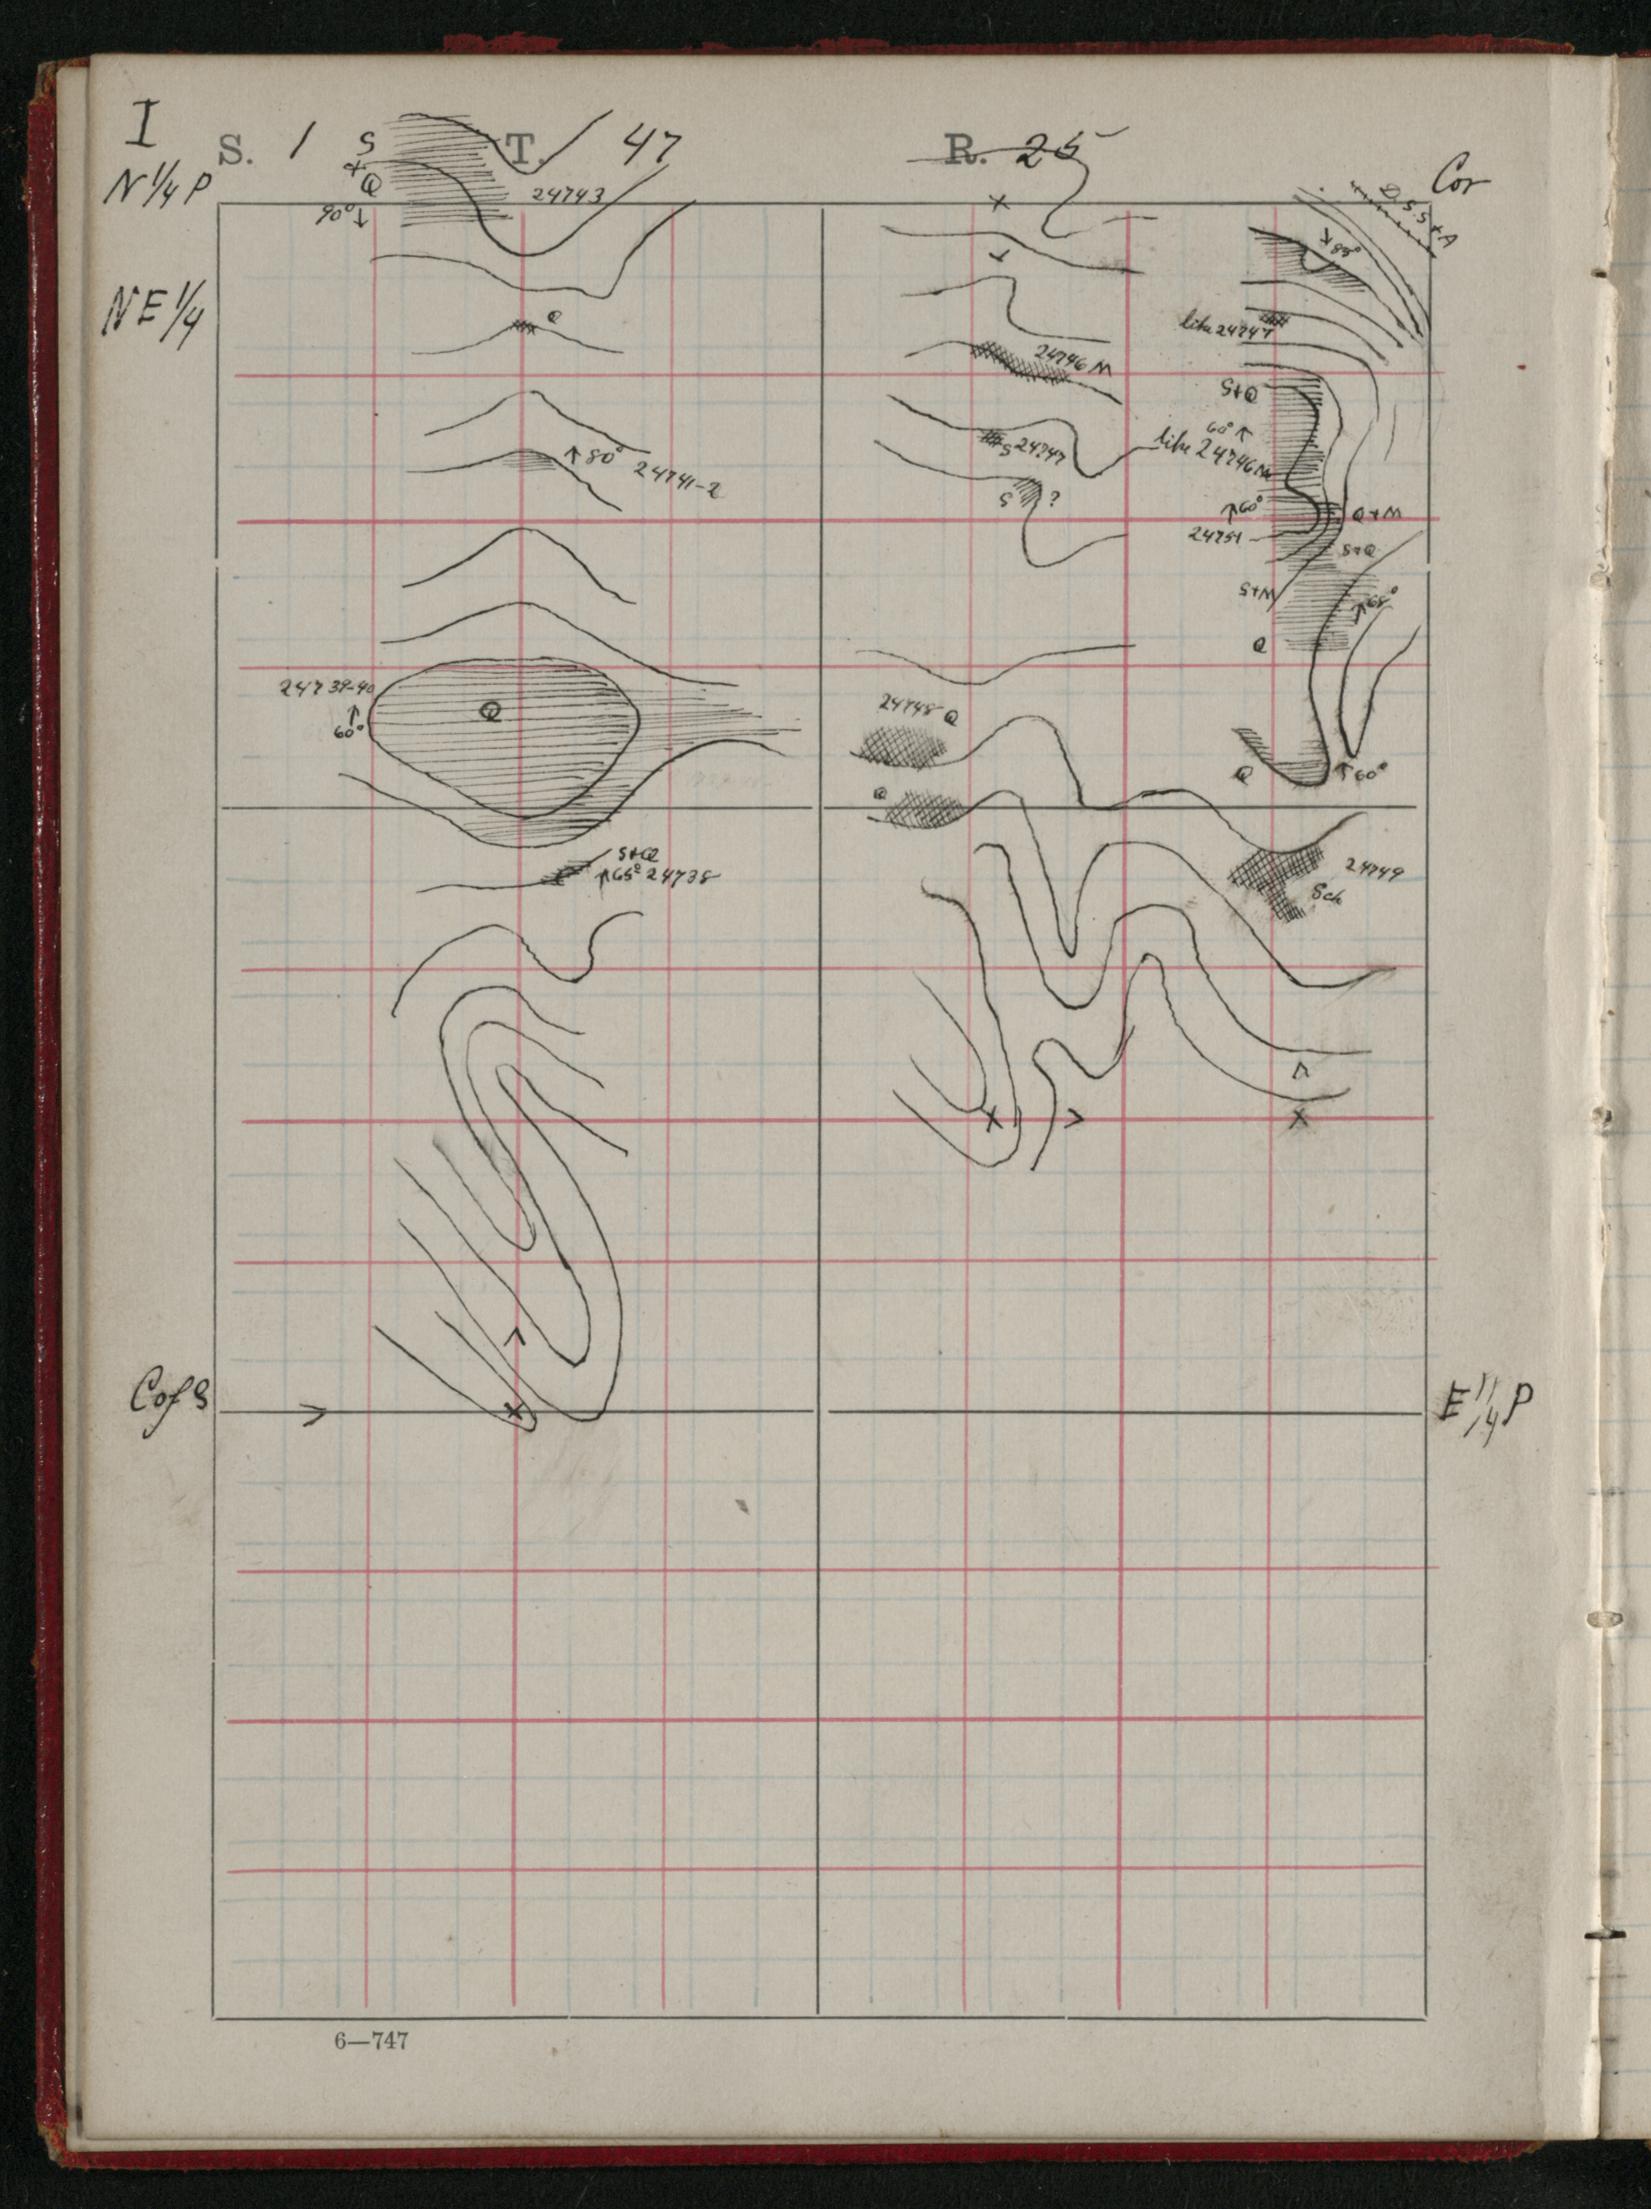 I
S. 1 T. 47 R. 25
S
Q
90°
N 1/4 P
24743
Cor
D.S.S+A
85°
NE 1/4
Q
like 24747
24746 M
S+Q
60°
80° 24741-2
S 24747
like 24746 M
S ?
60°
Q+M
24751
S+Q
S+M
65°
Q
24739-40
Q
60°
24748 Q
Q
60°
Q
S+Q
65° 24738
24749
Sch
C of S
E 1/4 P
6—747